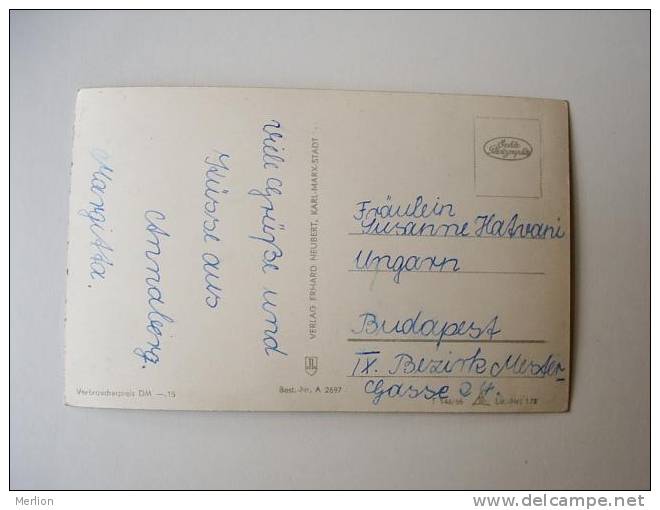 Viele Grüße und
Küsse aus
Annaberg.
Margitta.
VERLAG ERHARD NEUBERT, KARL-MARX-STADT
Echte Photographie
Fräulein
Susanne Hatvani
Ungarn
Budapest
IX. Bezirk Mester-
Gasse
Verbraucherpreis DM —.15
Best.-Nr. A 2697
Merlion
http://www.delcampe.net